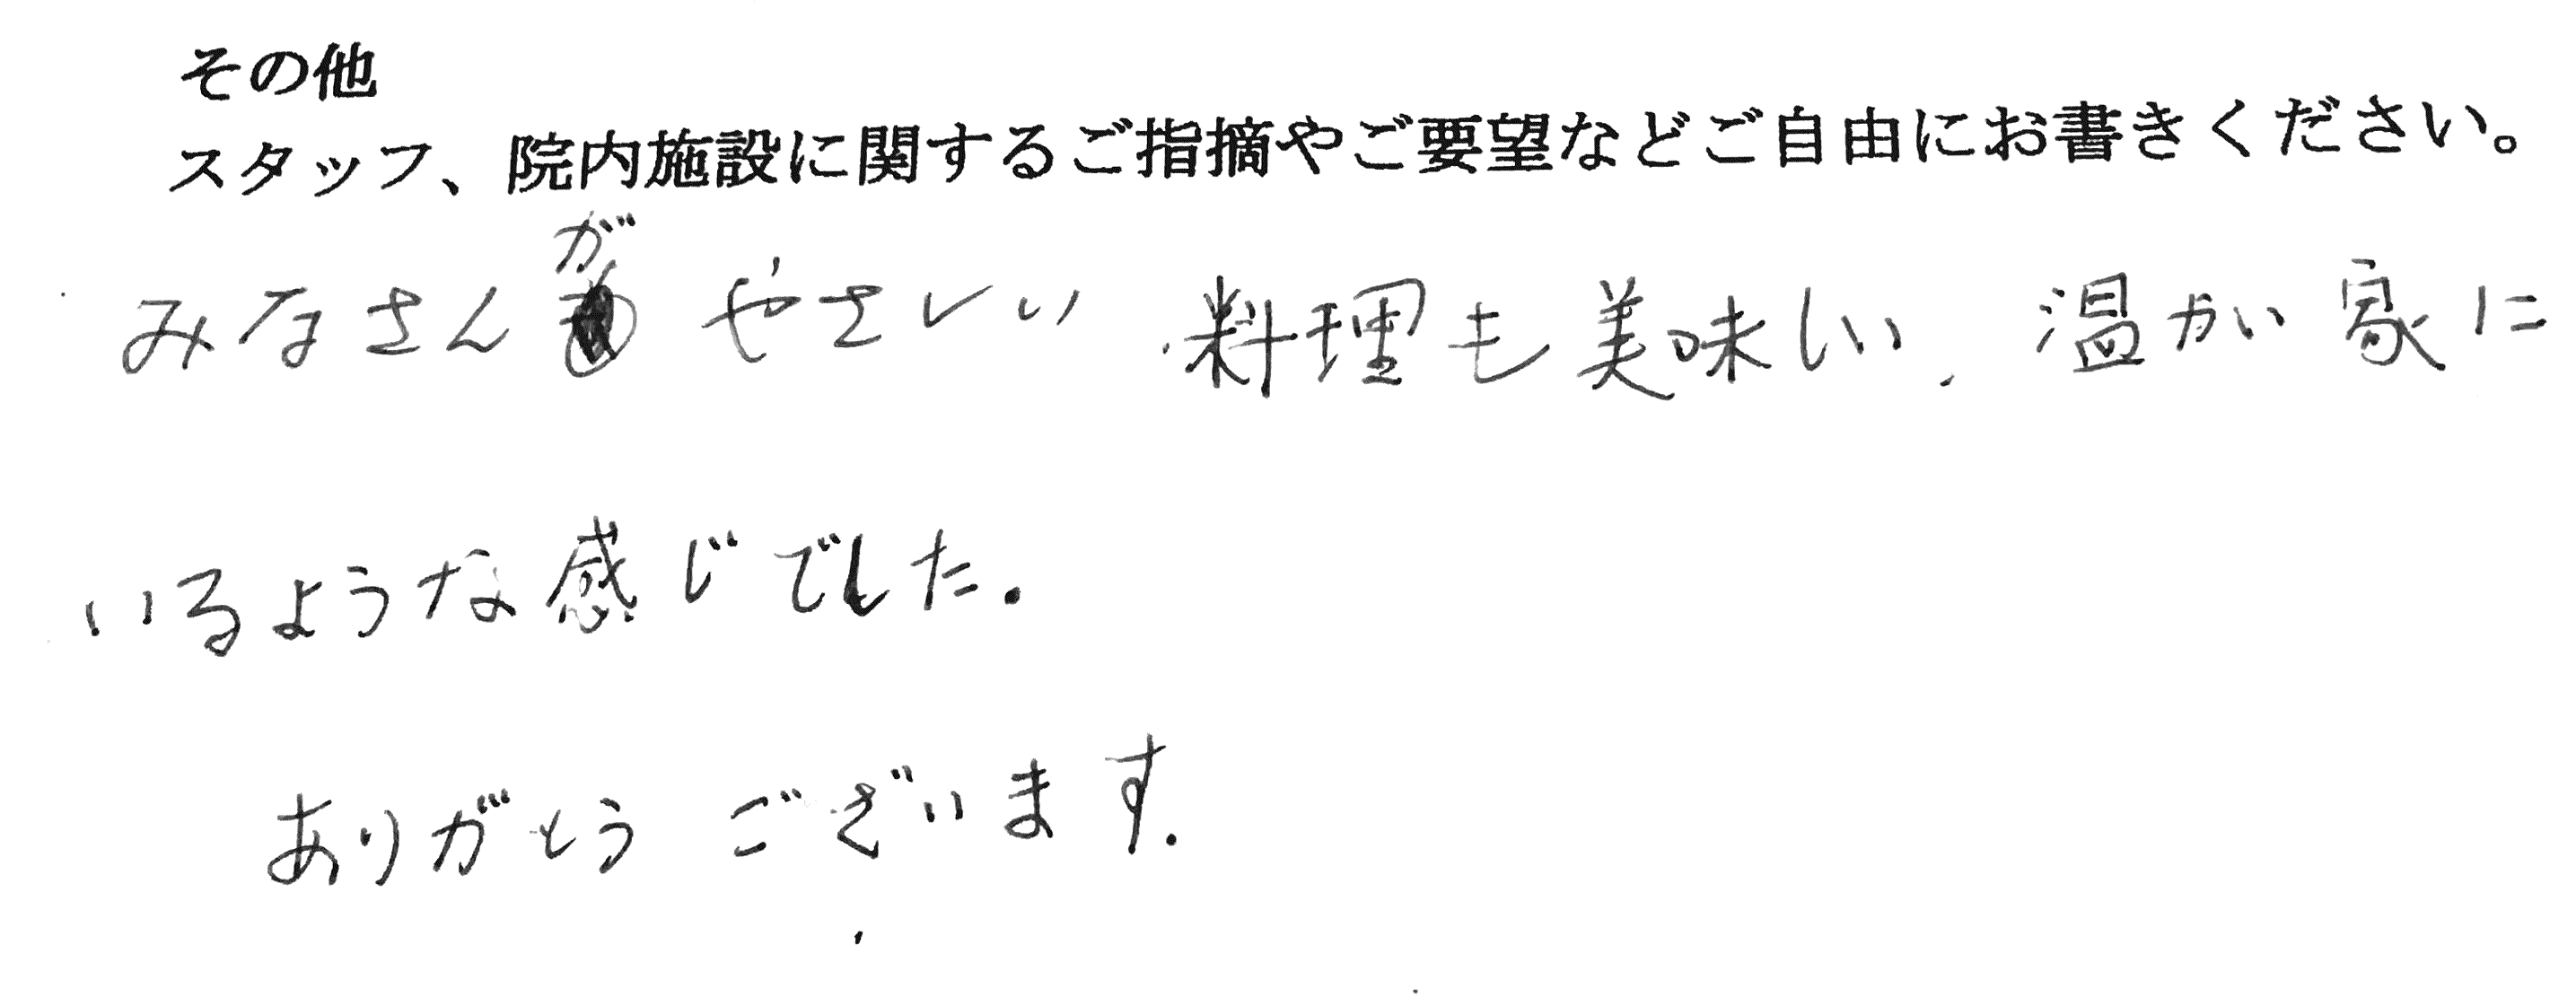 その他
スタッフ、院内施設に関するご指摘やご要望などご自由にお書きください。
みなさんが やさしい 料理も美味しい、温かい家に
いるような感じでした.
ありがとう ございます.